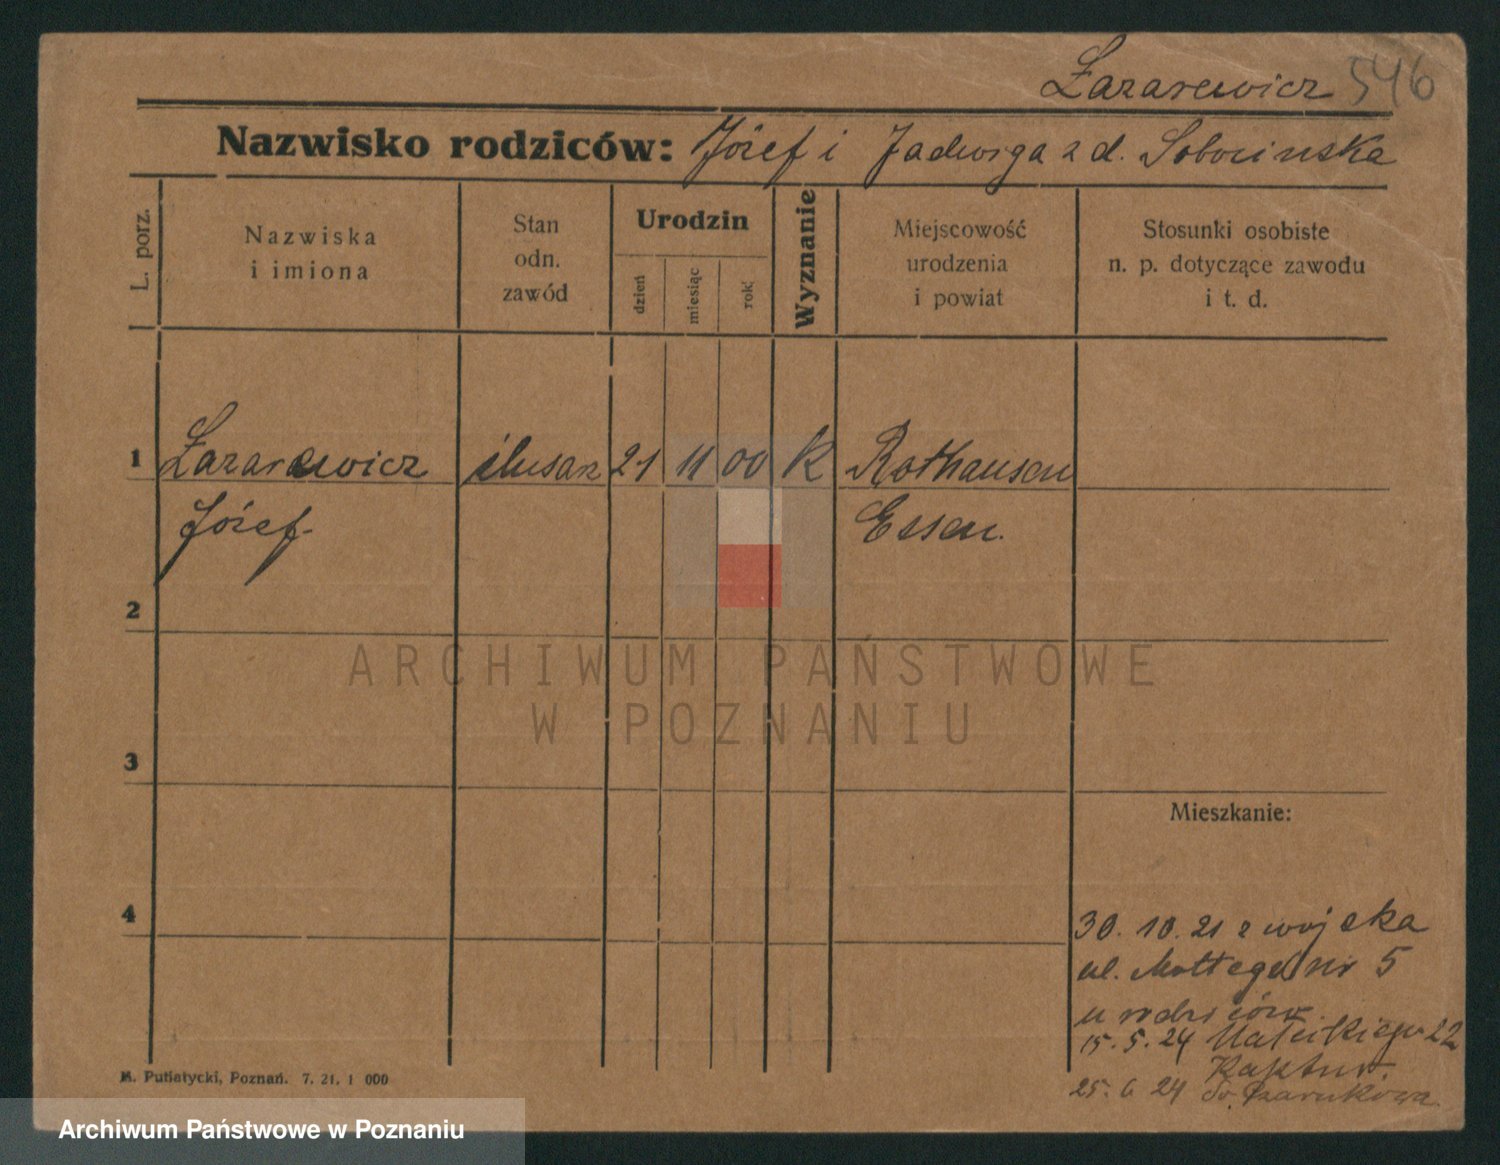 Łazarewicz 546
Nazwisko rodziców: Józef i Jadwiga z d. Sobocinska
L. porz.
Nazwiska
i imiona
Stan
odn.
zawód
Urodzin
dzień
miesiąc
rok
Wyznanie
Miejscowość
urodzenia
i powiat
Stosunki osobiste
n. p. dotyczące zawodu
i t. d.
1 Łazarewicz ślusarz 21 11 00 K Rothausen
Józef Essen.
2
3
Mieszkanie:
4
30. 10. 21 z wojska
ul. nr 5
u rodziców
15. 5. 24 22
25. 6 24
M. Putiatycki, Poznań. 7. 21. 1 000
ARCHIWUM PAŃSTWOWE
W POZNANIU
Archiwum Państwowe w Poznaniu